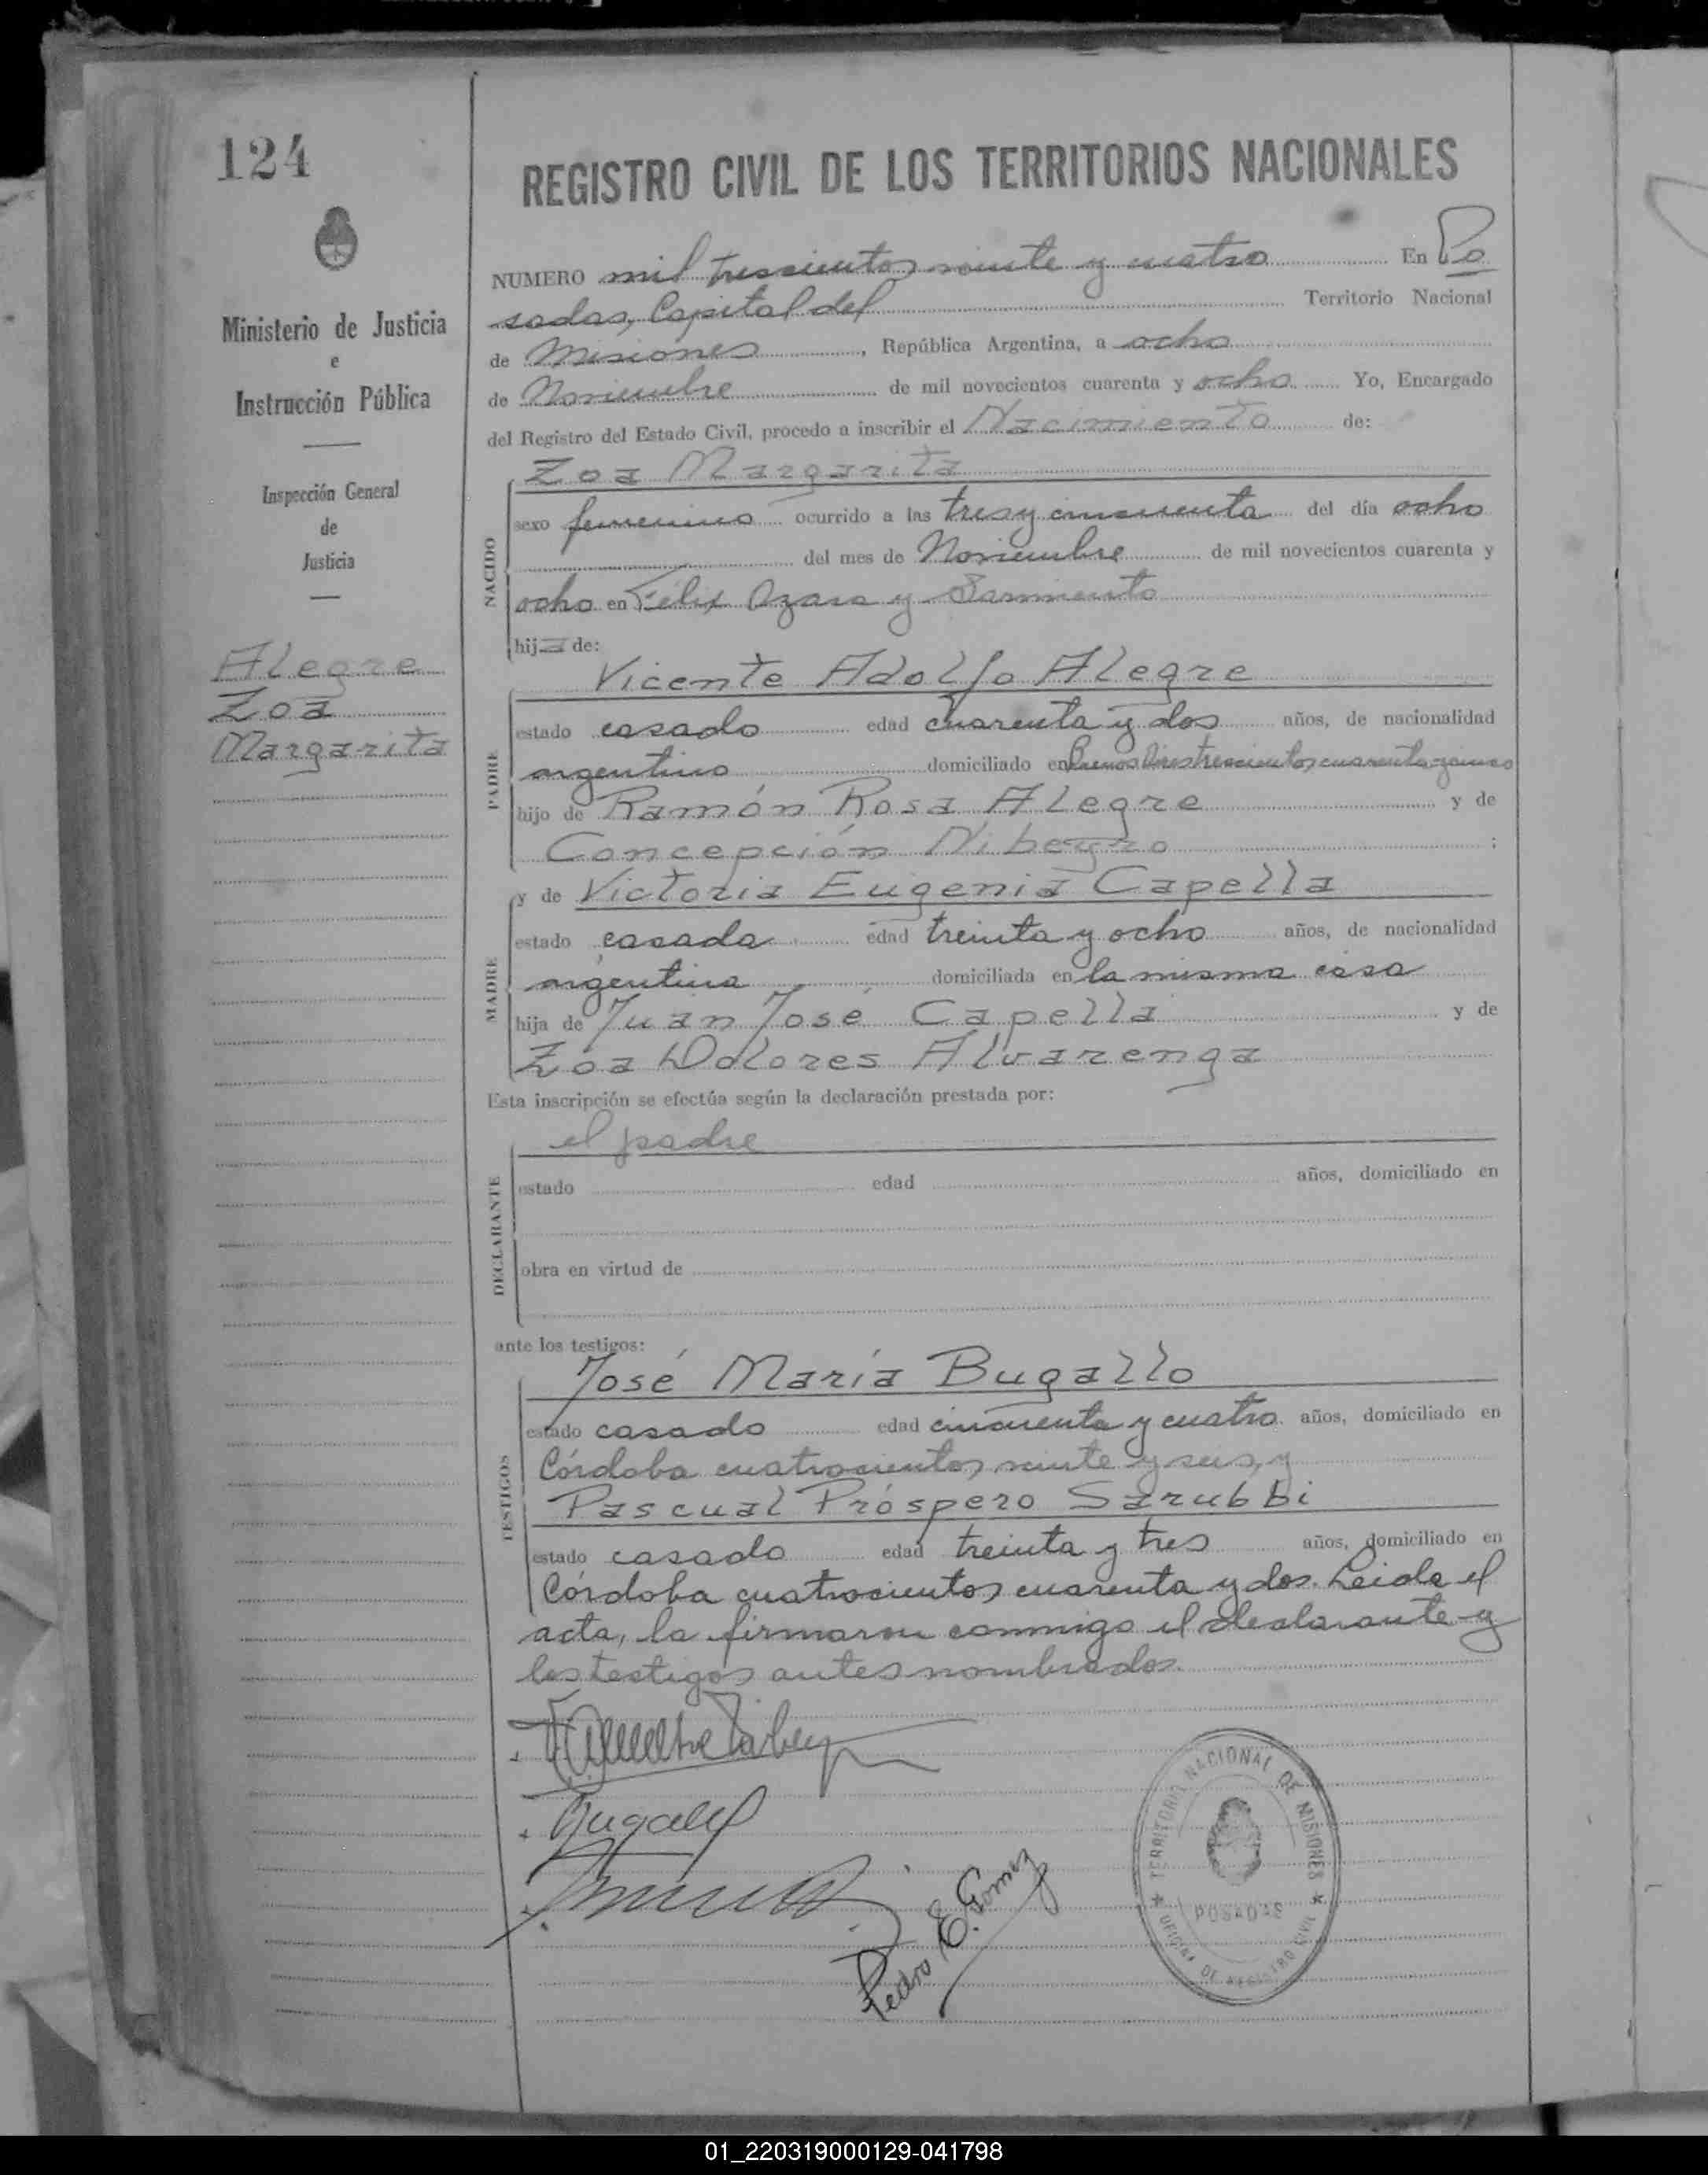 124
REGISTRO CIVIL DE LOS TERRITORIOS NACIONALES
NUMERO mil trescientos veinte y cuatro En Po
sadas, Capital del Territorio Nacional
de Misiones, República Argentina, a ocho
de Noviembre de mil novecientos cuarenta y ocho Yo, Encargado
del Registro del Estado Civil, procedo a inscribir el Nacimiento de:
Zoa Margarita
Ministerio de Justicia
e
Instrucción Pública
Inspección General
de
Justicia
Alegre
Zoa
Margarita
NACIDO
sexo femenino ocurrido a las tres y cincuenta del día ocho
del mes de Noviembre de mil novecientos cuarenta y
ocho en Félix Azara y Sarmiento
hija de:
Vicente Adolfo Alegre
PADRE
estado casado edad cuarenta y dos años, de nacionalidad
argentino domiciliado en Buenos Aires trescientos cuarenta y cinco
hijo de Ramón Rosa Alegre y de
Concepción Niheyro;
y de Victoria Eugenia Capella
MADRE
estado casada edad treinta y ocho años, de nacionalidad
argentina domiciliada en la misma casa
hija de Juan José Capella y de
Zoa Dolores Alvarenga
Esta inscripción se efectúa según la declaración prestada por:
el padre
DECLARANTE
estado edad años, domiciliado en
obra en virtud de
ante los testigos:
José María Bugallo
TESTIGOS
estado casado edad cincuenta y cuatro años, domiciliado en
Córdoba cuatrocientos veinte y seis, y
Pascual Próspero Sarubbi
estado casado edad treinta y tres años, domiciliado en
Córdoba cuatrocientos cuarenta y dos. Leída el
acta, la firmaron conmigo el declarante y
los testigos antes nombrados.
Bugallo
Pedro E. Gomez
TERRITORIO NACIONAL DE MISIONES
POSADAS
OFICINA DE REGISTRO CIVIL
01_220319000129-041798